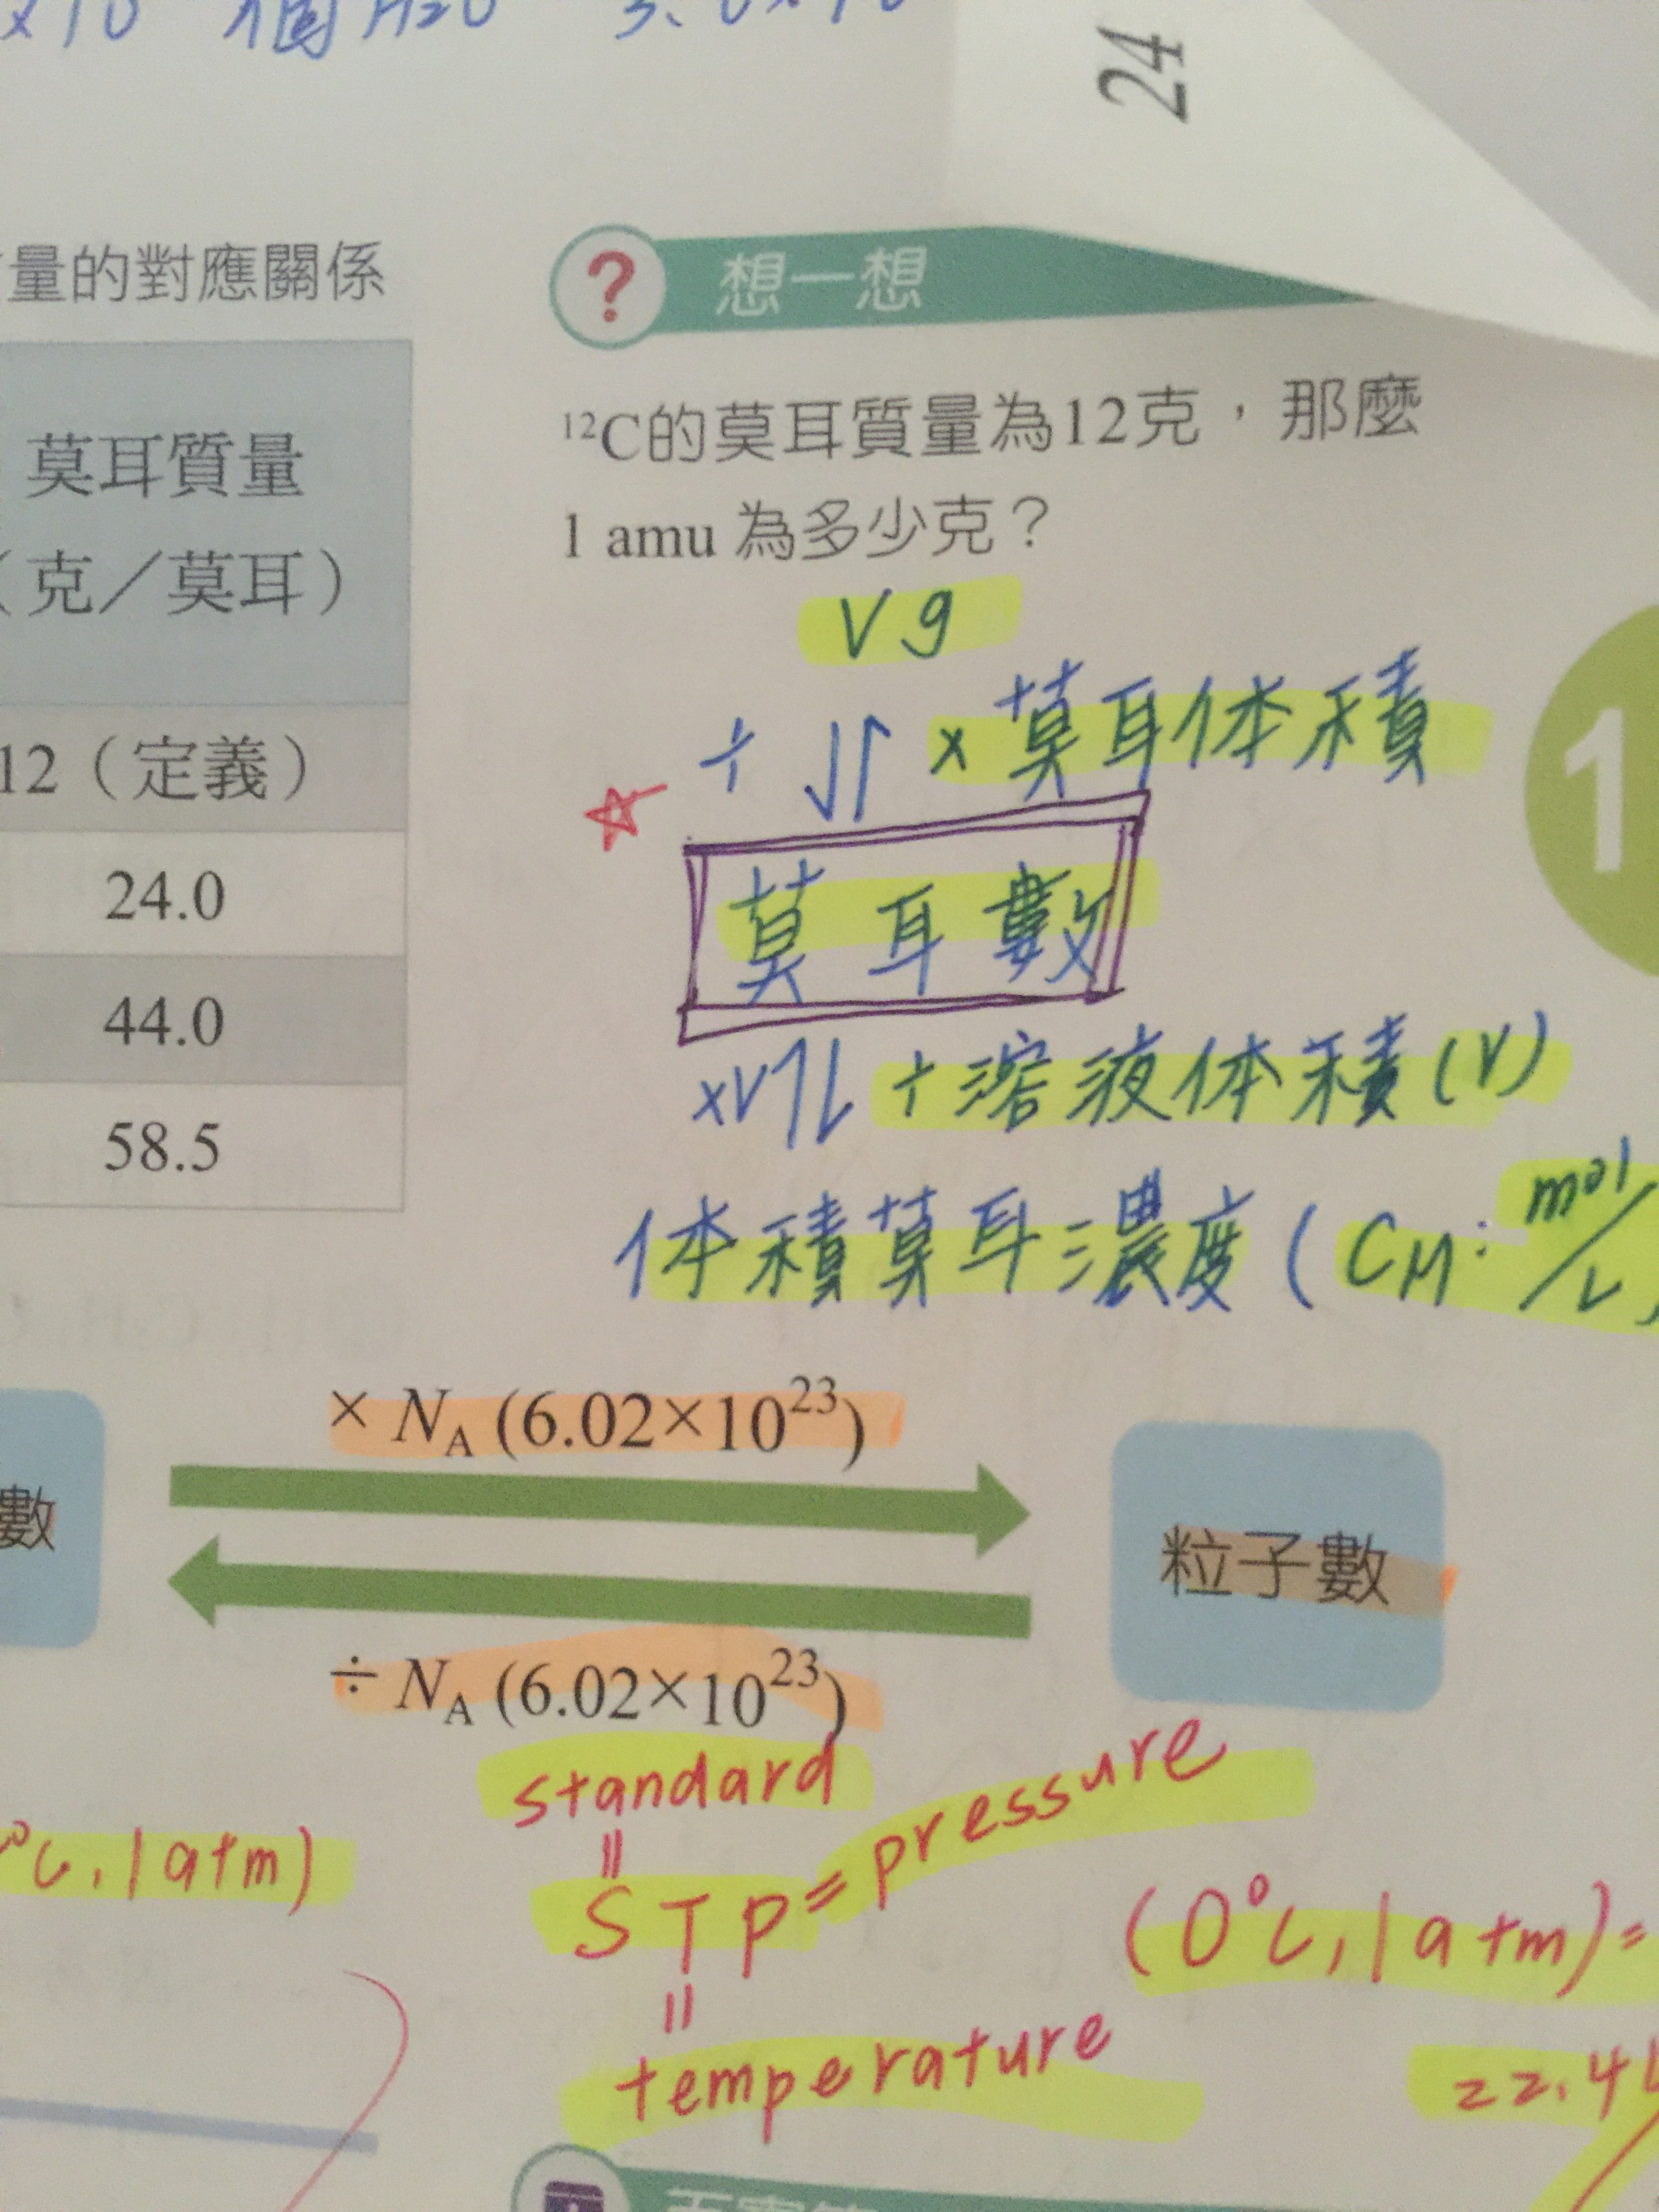 24
量的對應關係
莫耳質量
（克／莫耳）
12（定義）
24.0
44.0
58.5
想一想
¹²C的莫耳質量為12克，那麼
1 amu 為多少克？
V g
÷ ↓↑ × 莫耳体積
莫耳數
×V ↑↓ ÷溶液体積(V)
体積莫耳濃度 ( CM: mol/L )
1
× NA (6.02×10²³)
數
粒子數
÷ NA (6.02×10²³)
standard
=
°C, 1 atm)
STP = pressure
(0°C, 1 atm) =
=
temperature
22.4L